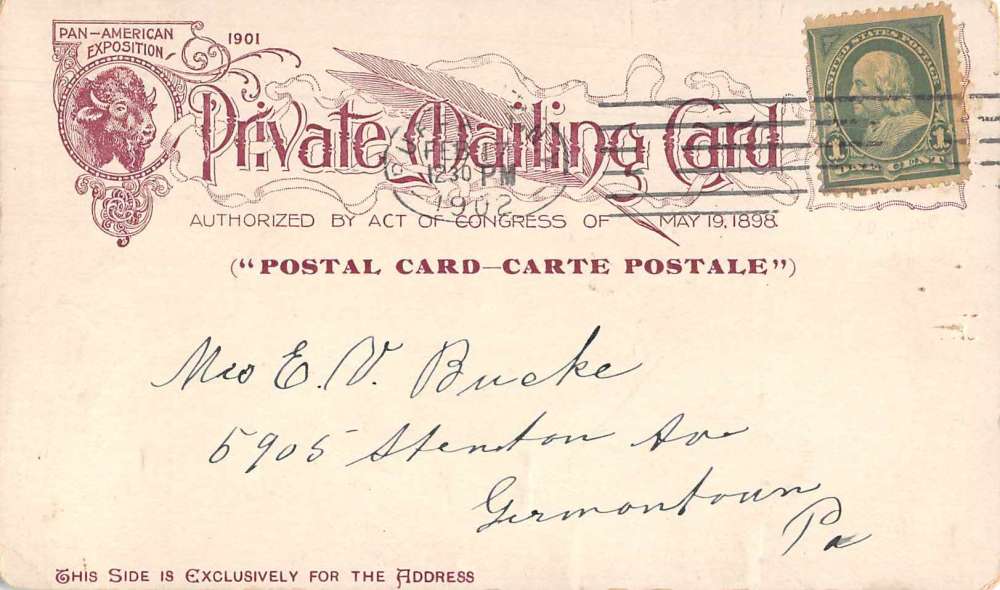 PAN-AMERICAN
EXPOSITION
1901
Private Mailing Card
FEB
12 30 PM
1902
AUTHORIZED BY ACT OF CONGRESS OF MAY 19, 1898.
("POSTAL CARD—CARTE POSTALE")
UNITED STATES POSTAGE
1 1
ONE CENT
Mrs E. V. Bucke
5905 Stenton Av
Germantown
Pa
THIS SIDE IS EXCLUSIVELY FOR THE ADDRESS